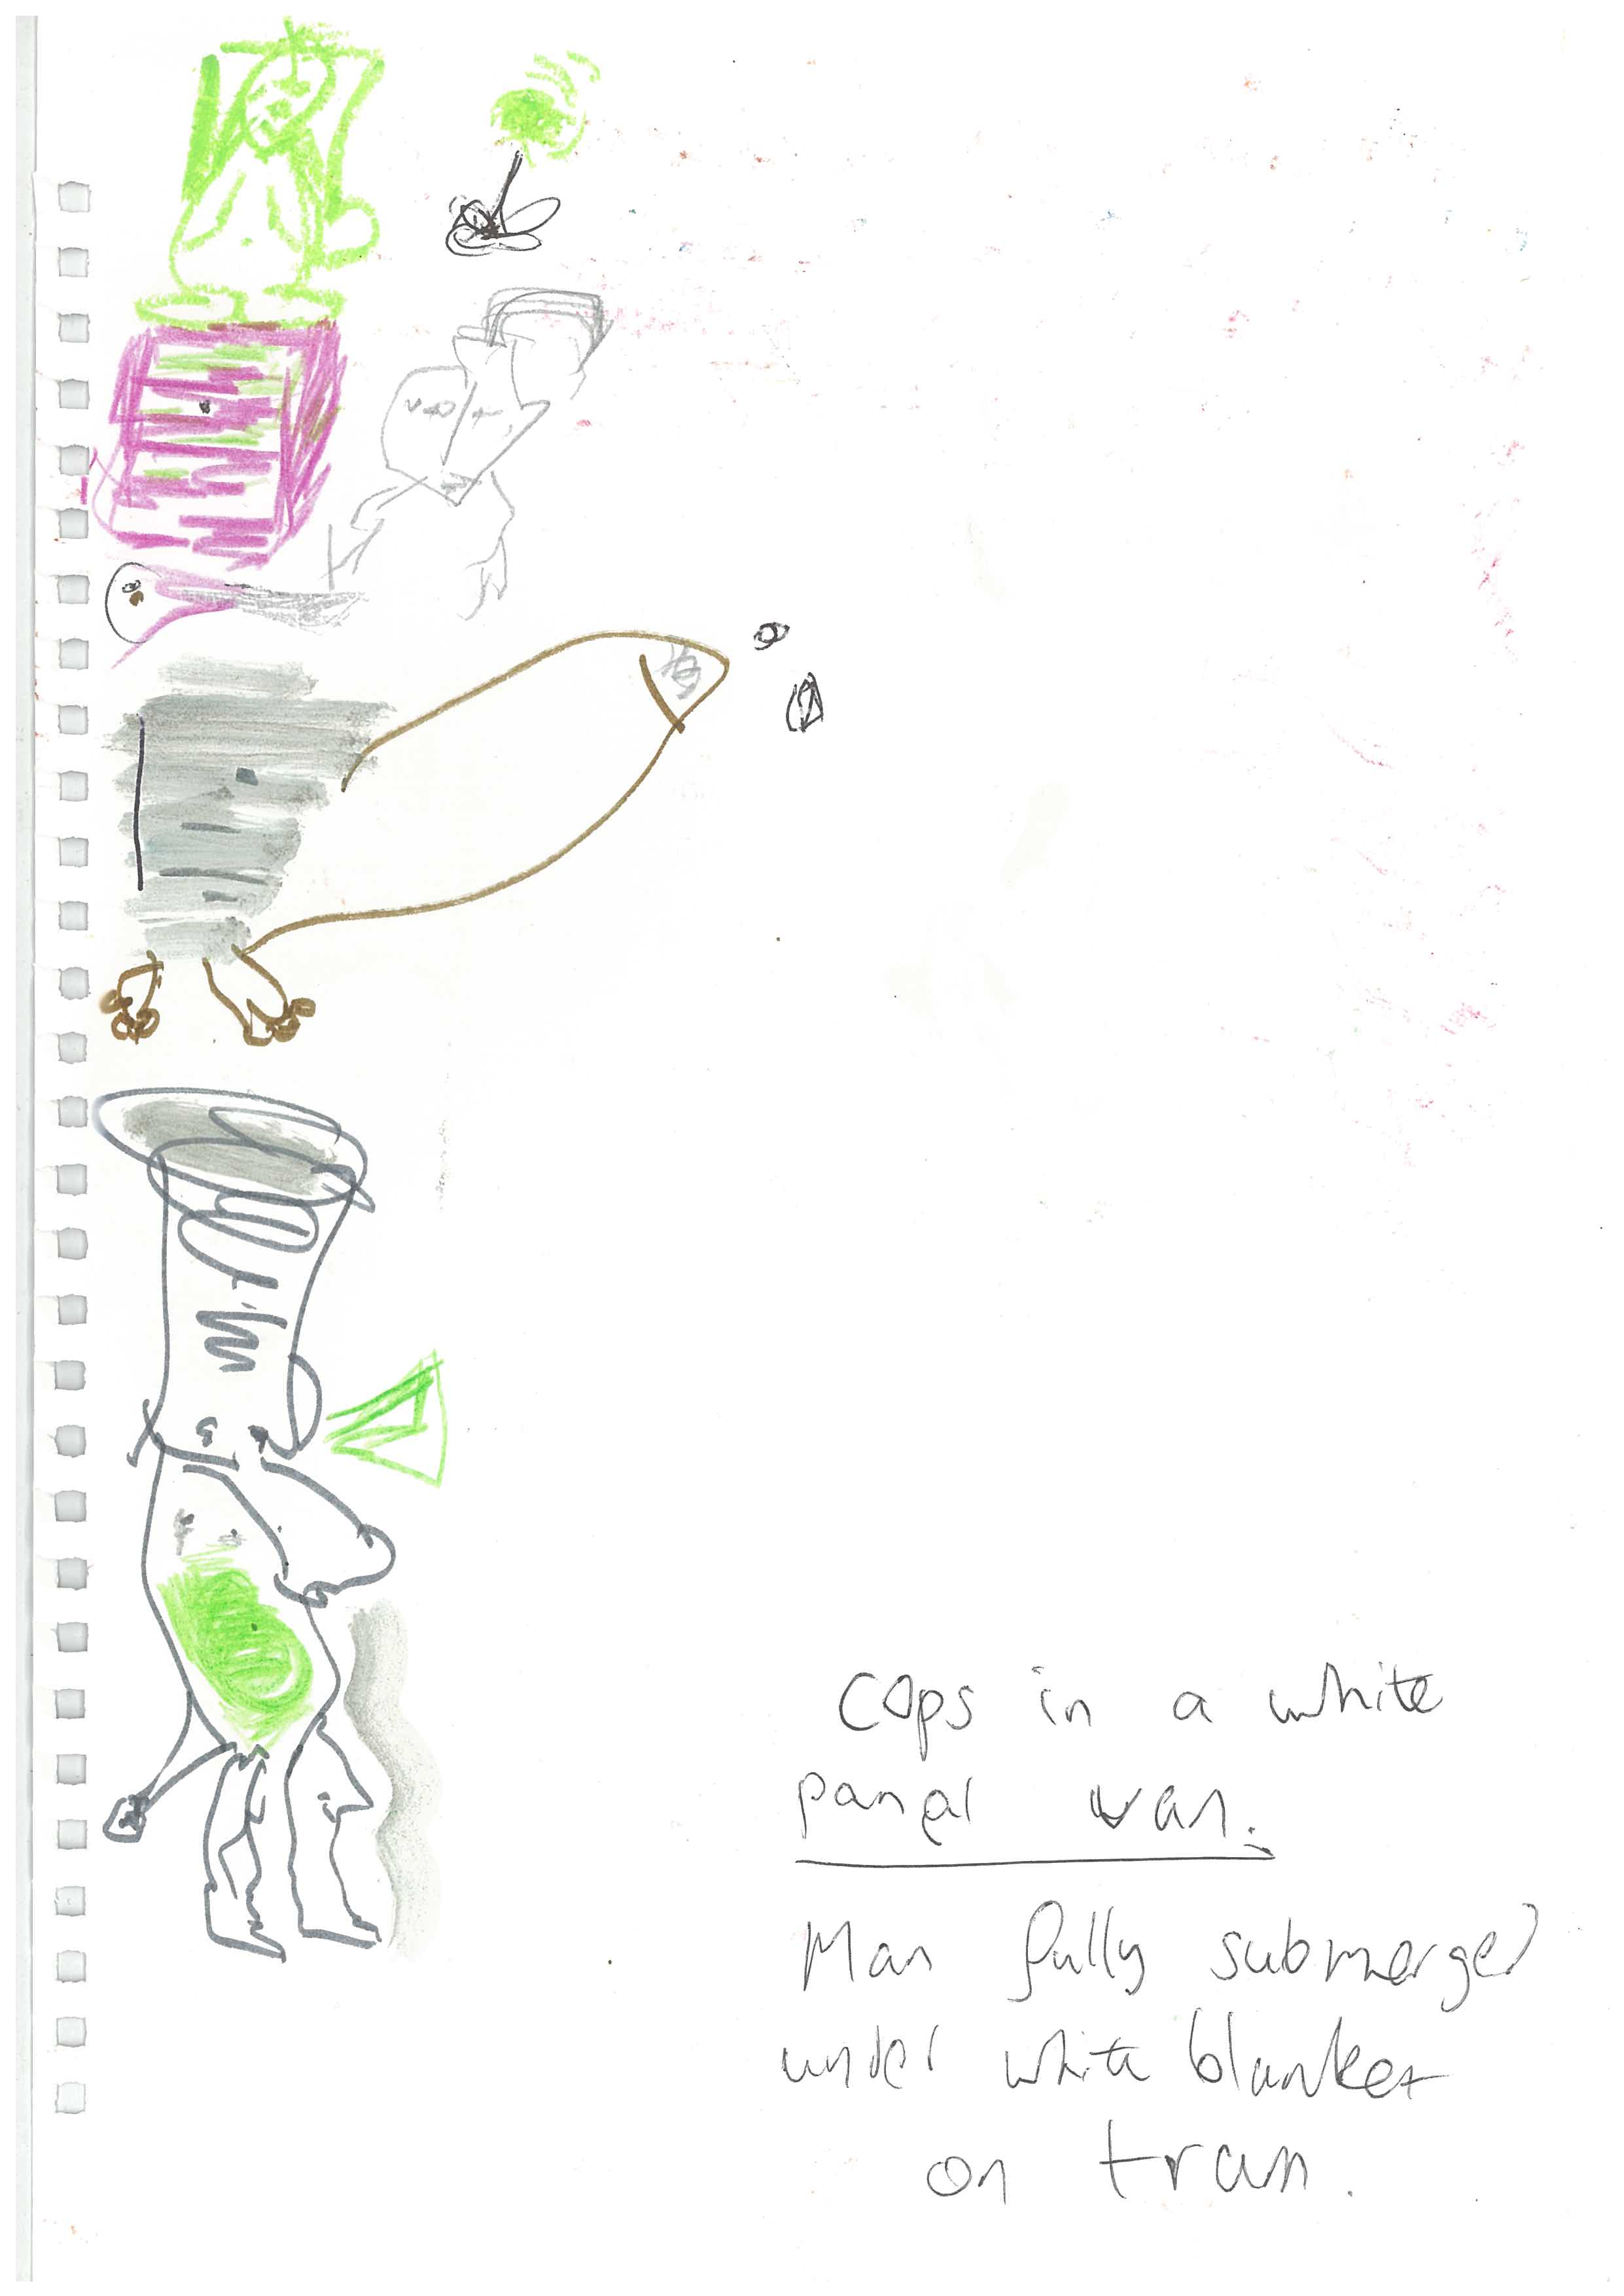 Cops in a white
panel van.
Man fully submerged
under white blanket
on tram.